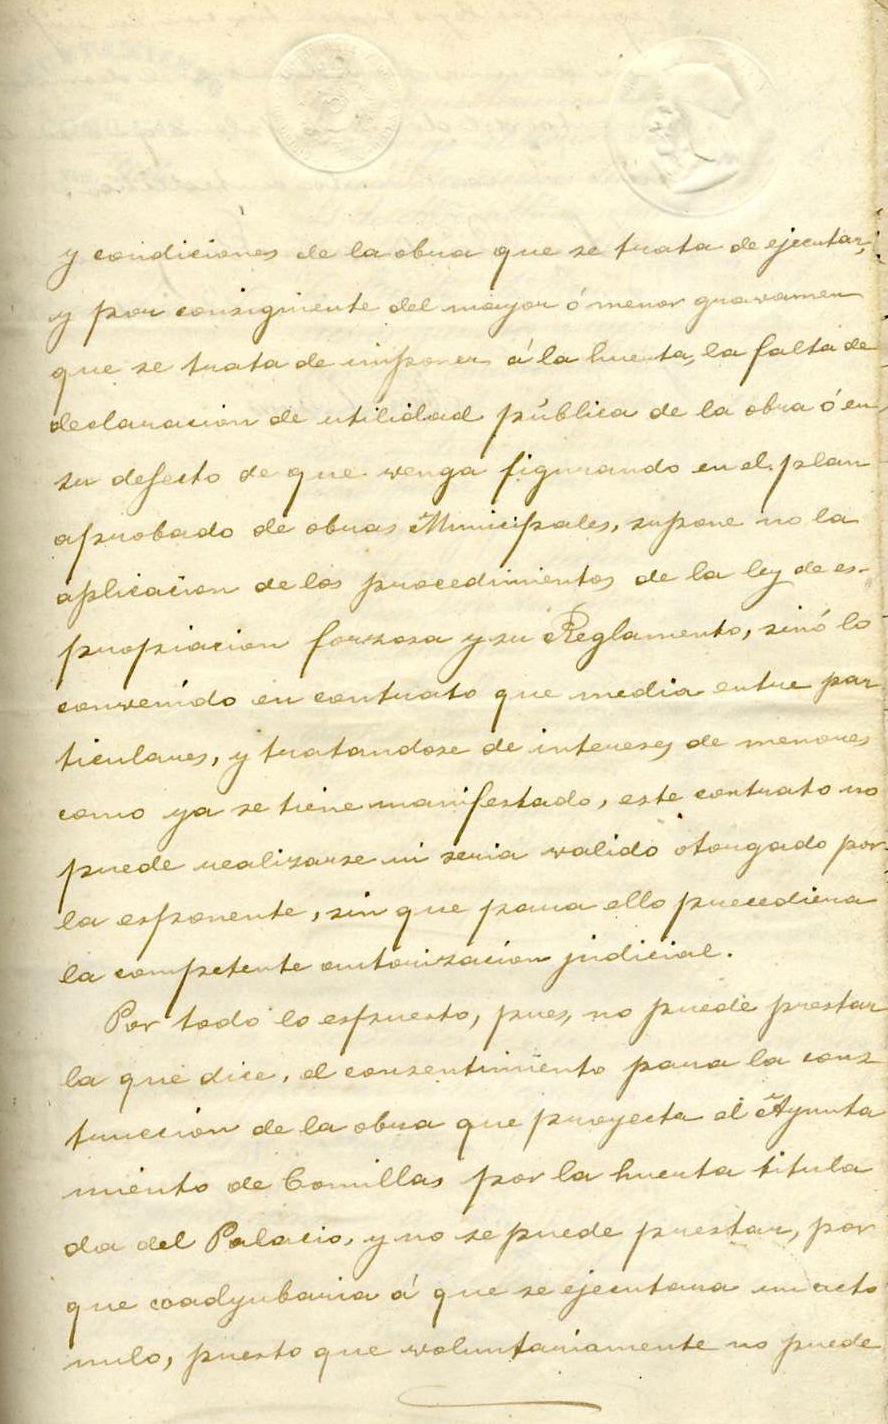 y condiciones de la obra que se trata de ejecutar,
y por consigniente del mayor ó menor gravamen
que se trata de imponer á la huerta, la falta de
declaracion de utilidad pública de la obra ó en
su defecto de que venga figurando en el plan
aprobado de obras Municipales, supone no la
aplicacion de los procedimientos de la ley de es-
propiacion forzosa y su Reglamento, sinó lo
convenido en contrato que media entre par
ticulares, y tratandose de intereses de menores
como ya se tiene manifestado, este contrato no
puede realizarse ni seria valido otorgado por
la esponente, sin que para ello precediera
la competente autorizacion judicial.
Por todo lo espuesto, pues, no puede prestar
la que dice, el consentimiento para la cons
truccion de la obra que proyecta el Ayunta
miento de Comillas por la huerta titula
da del Palacio, y no se puede prestar, por
que coadyubaria á que se ejecutara un acto
nulo, puesto que voluntariamente no puede